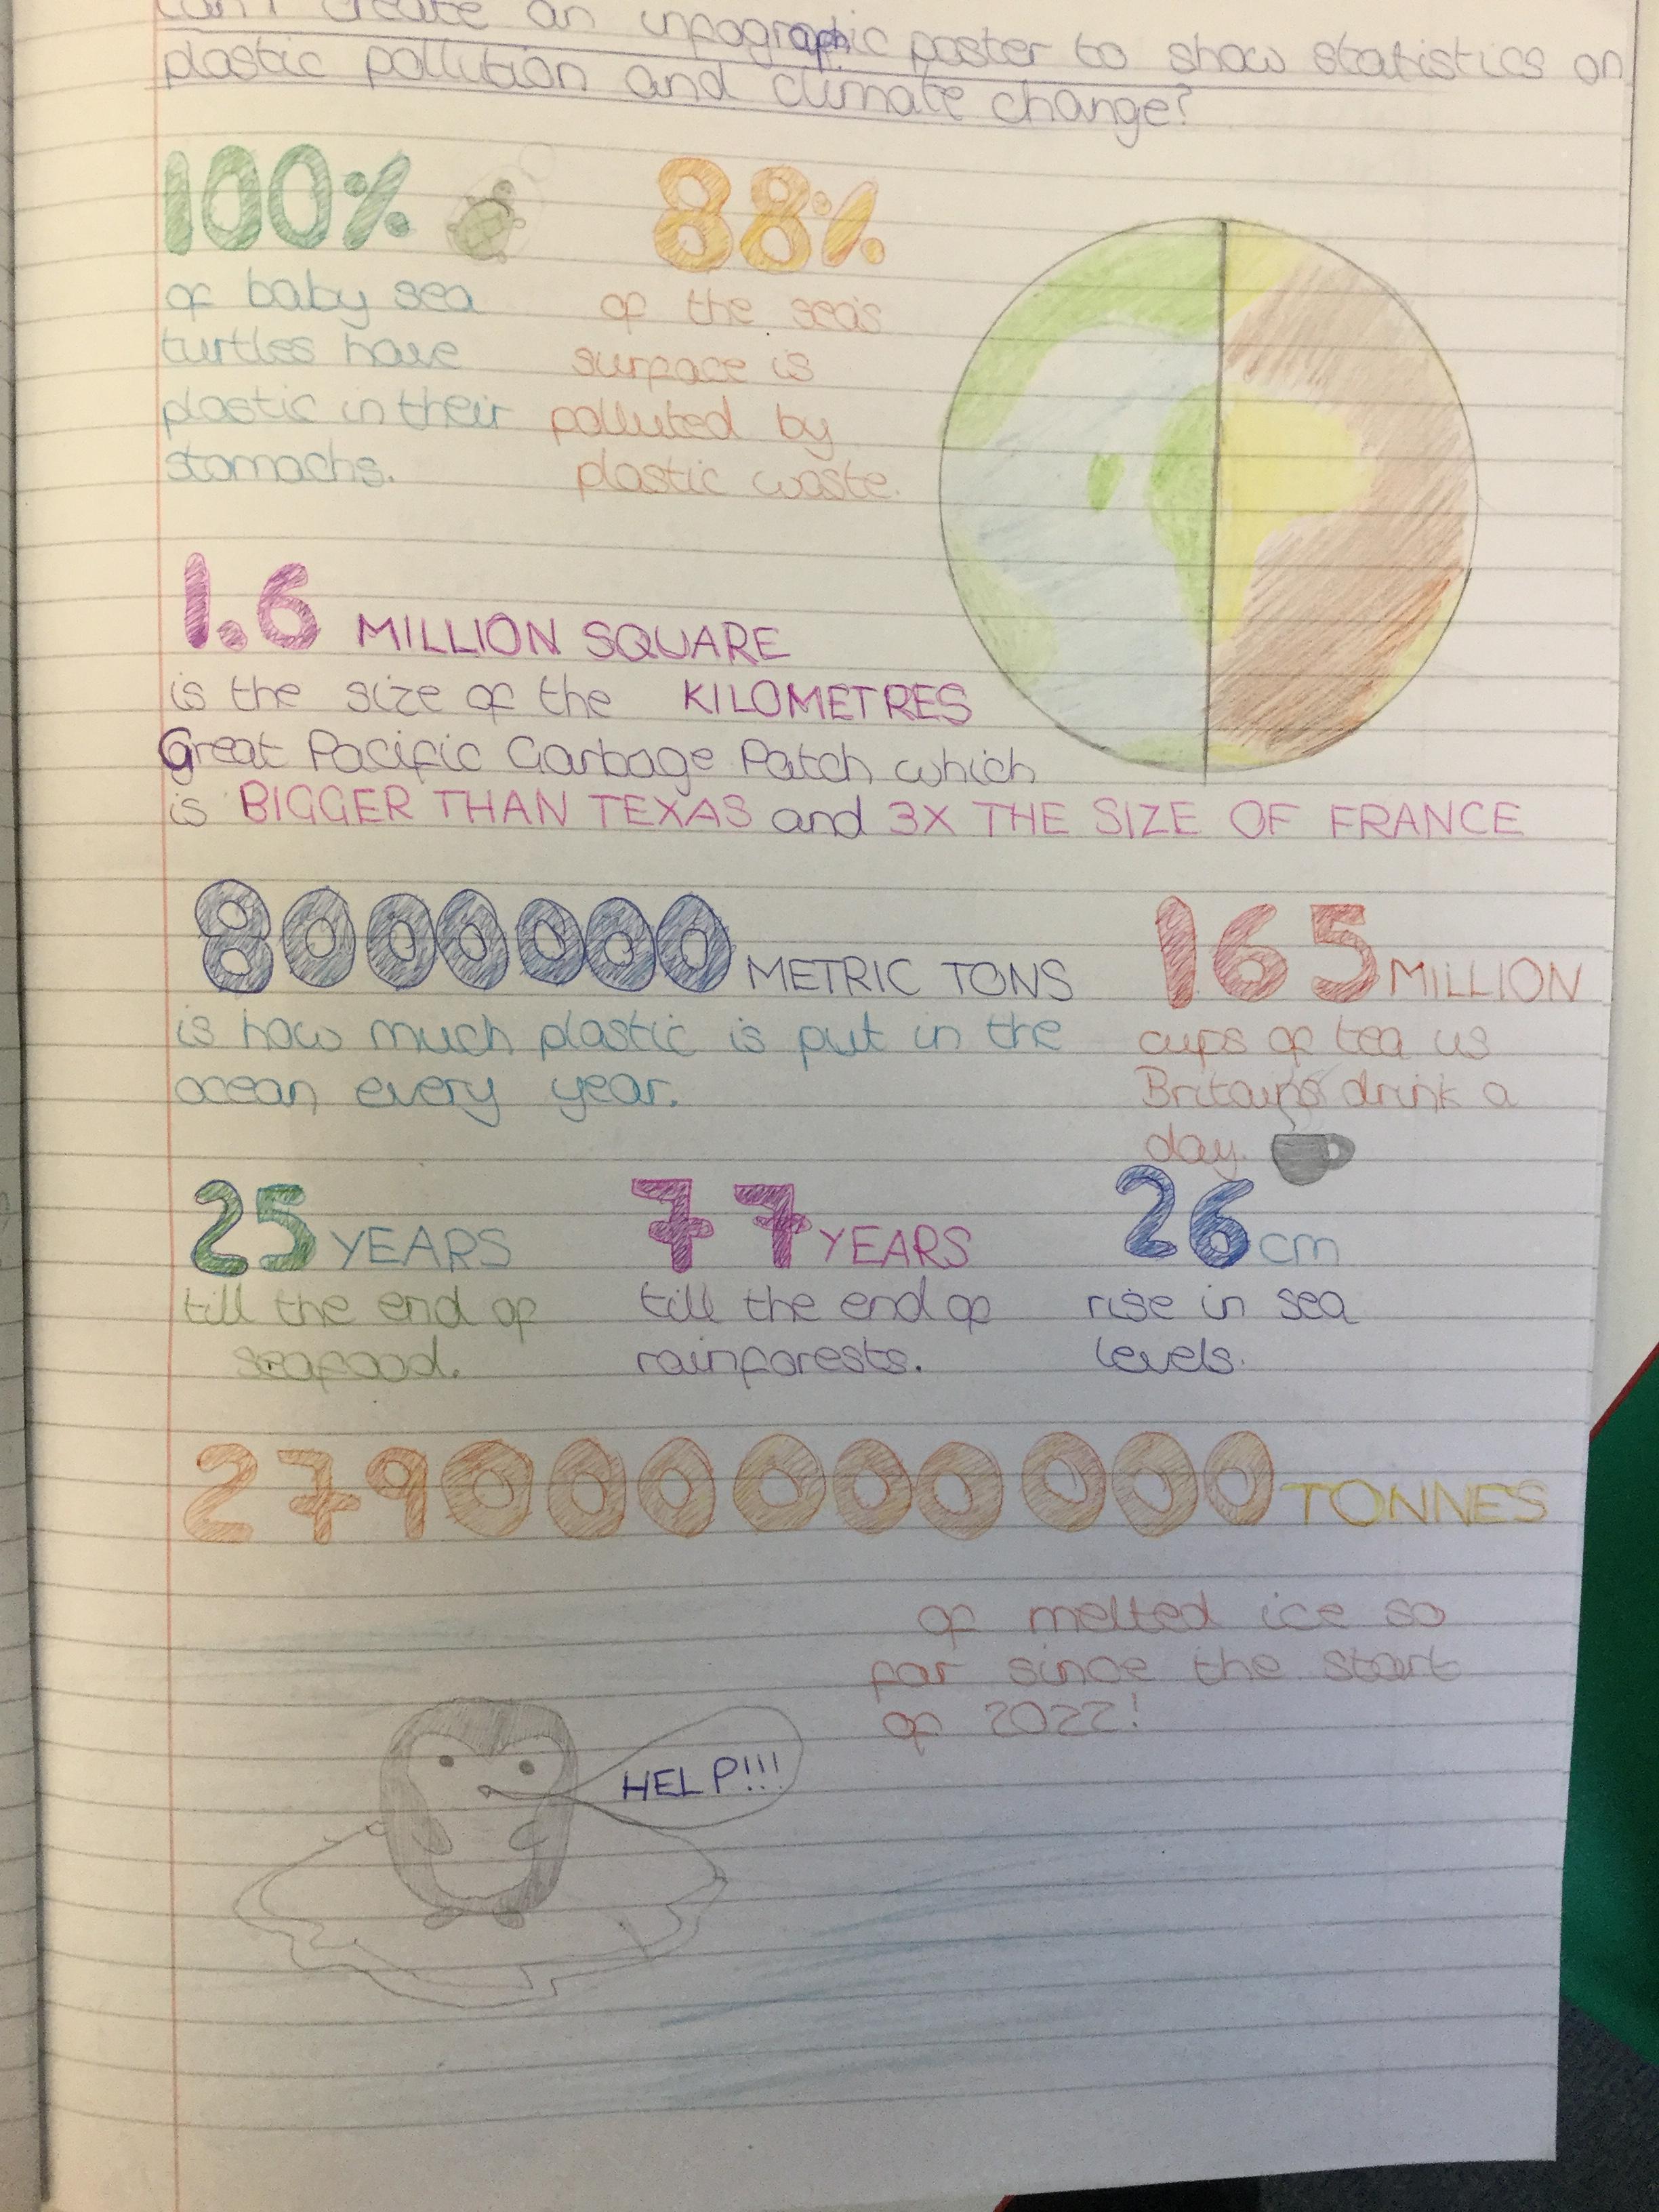 Can I create an infographic poster to show statistics on
plastic pollution and climate change?
100%
of baby sea
turtles have
plastic in their
stomachs.
88%
of the sea's
surface is
polluted by
plastic waste.
1.6 MILLION SQUARE
is the size of the KILOMETRES
Great Pacific Garbage Patch which
is BIGGER THAN TEXAS and 3X THE SIZE OF FRANCE
8000000 METRIC TONS
is how much plastic is put in the
ocean every year.
165 MILLION
cups of tea us
Britains drink a
day.
25 YEARS
till the end of
seafood.
77 YEARS
till the end of
rainforests.
26 cm
rise in sea
levels.
279000000000 TONNES
of melted ice so
far since the start
of 2022!
HELP!!!